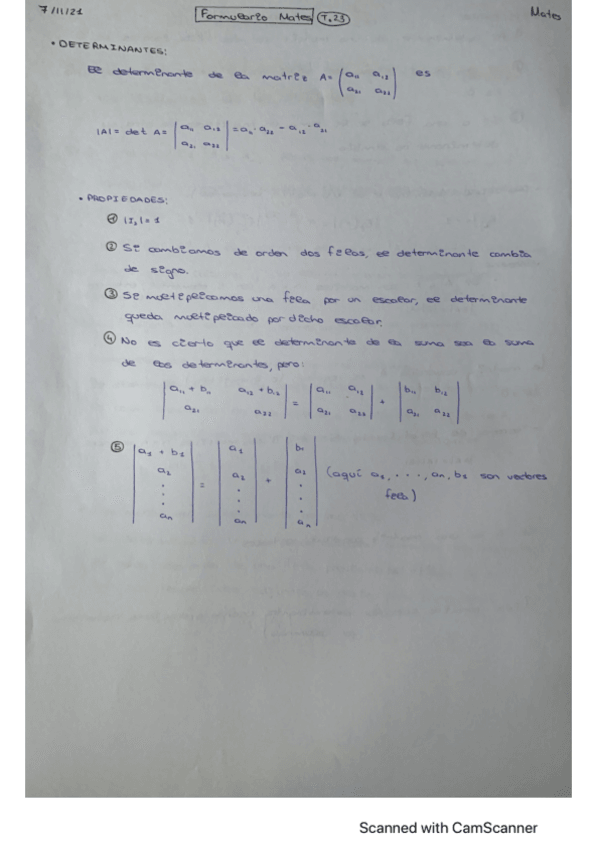 7/11/21 Formulario Mates T.23 Mates
• DETERMINANTES:
El determinante de la matriz A= (a₁₁ a₁₂ es
a₂₁ a₂₂)
|A| = det A = |a₁₁ a₁₂ = a₁₁ · a₂₂ - a₁₂ · a₂₁
a₂₁ a₂₂|
• PROPIEDADES:
① |I₂| = 1
② Si cambiamos de orden dos filas, el determinante cambia
de signo.
③ Si multiplicamos una fila por un escalar, el determinante
queda multiplicado por dicho escalar.
④ No es cierto que el determinante de la suma sea la suma
de los determinantes, pero:
|a₁₁ + b₁₁ a₁₂ + b₁₂| = |a₁₁ a₁₂| + |b₁₁ b₁₂|
|a₂₁ a₂₂| |a₂₁ a₂₂| |a₂₁ a₂₂|
⑤ |a₁ + b₁| |a₁| |b₁|
a₂ = a₂ + a₂ (aquí a₁, ..., an, b₁ son vectores
. . . fila)
. . .
. . .
an an an
Scanned with CamScanner